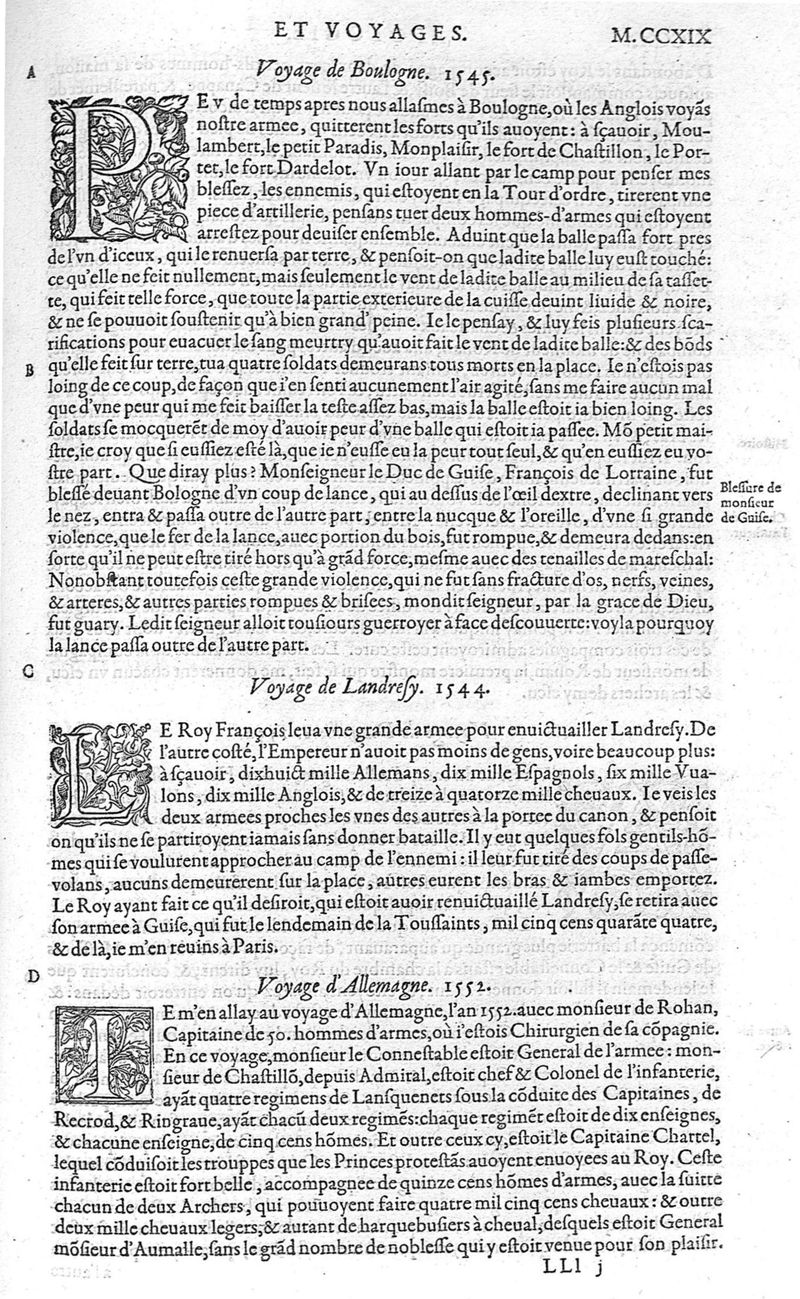 ET VOYAGES. M.CCXIX
A
Voyage de Boulogne. 1545.
PEV de temps apres nous allaſmes à Boulogne, où les Anglois voyãs
noſtre armee, quitterent les forts qu'ils auoyent: à ſçauoir, Mou-
lambert, le petit Paradis, Monplaiſir, le fort de Chaſtillon, le Por-
tet, le fort Dardelot. Vn iour allant par le camp pour penſer mes
bleſſez, les ennemis, qui eſtoyent en la Tour d'ordre, tirerent vne
piece d'artillerie, penſans tuer deux hommes-d'armes qui eſtoyent
arreſtez pour deuiſer enſemble. Aduint que la balle paſſa fort pres
de l'vn d'iceux, qui le renuerſa par terre, & penſoit-on que ladite balle luy euſt touché:
ce qu'elle ne feit nullement, mais ſeulement le vent de ladite balle au milieu de ſa taſſet-
te, qui feit telle force, que toute la partie exterieure de la cuiſſe deuint liuide & noire,
& ne ſe pouuoit ſouſtenir qu'à bien grand' peine. Ie le penſay, & luy feis pluſieurs ſca-
rifications pour euacuer le ſang meurtry qu'auoit fait le vent de ladite balle: & des bõds
B
qu'elle feit ſur terre, tua quatre ſoldats demeurans tous morts en la place. Ie n'eſtois pas
loing de ce coup, de façon que i'en ſenti aucunement l'air agité, ſans me faire aucun mal
que d'vne peur qui me feit baiſſer la teſte aſſez bas, mais la balle eſtoit ia bien loing. Les
ſoldats ſe mocquerẽt de moy d'auoir peur d'vne balle qui eſtoit ia paſſee. Mõ petit mai-
ſtre, ie croy que ſi euſſiez eſté là, que ie n'euſſe eu la peur tout ſeul, & qu'en euſſiez eu vo-
ſtre part. Que diray plus? Monſeigneur le Duc de Guiſe, François de Lorraine, fut
bleſſé deuant Bologne d'vn coup de lance, qui au deſſus de l'œil dextre, declinant vers
le nez, entra & paſſa outre de l'autre part, entre la nucque & l'oreille, d'vne ſi grande
violence, que le fer de la lance, auec portion du bois, fut rompue, & demeura dedans: en
ſorte qu'il ne peut eſtre tiré hors qu'à grãd force, meſme auec des tenailles de mareſchal:
Nonobſtant toutefois ceſte grande violence, qui ne fut ſans fracture d'os, nerfs, veines,
& arteres, & autres parties rompues & briſees, mondit ſeigneur, par la grace de Dieu,
fut guary. Ledit ſeigneur alloit touſiours guerroyer à face deſcouuerte: voyla pourquoy
la lance paſſa outre de l'autre part.
Bleſſure de
monſieur
de Guiſe.
C
Voyage de Landreſy. 1544.
LE Roy François leua vne grande armee pour enuictuailler Landreſy. De
l'autre coſté, l'Empereur n'auoit pas moins de gens, voire beaucoup plus:
à ſçauoir, dixhuict mille Allemans, dix mille Eſpagnols, ſix mille Vua-
lons, dix mille Anglois, & de treize à quatorze mille cheuaux. Ie veis les
deux armees proches les vnes des autres à la portee du canon, & penſoit
on qu'ils ne ſe partiroyent iamais ſans donner bataille. Il y eut quelques fols gentils-hõ-
mes qui ſe voulurent approcher au camp de l'ennemi: il leur fut tiré des coups de paſſe-
volans, aucuns demeurerent ſur la place, autres eurent les bras & iambes emportez.
Le Roy ayant fait ce qu'il deſiroit, qui eſtoit auoir renuictuaillé Landreſy, ſe retira auec
ſon armee à Guiſe, qui fut le lendemain de la Touſſaints, mil cinq cens quarãte quatre,
& de là, ie m'en reuins à Paris.
D
Voyage d'Allemagne. 1552.
IE m'en allay au voyage d'Allemagne, l'an 1552. auec monſieur de Rohan,
Capitaine de 50. hommes d'armes, où i'eſtois Chirurgien de ſa cõpagnie.
En ce voyage, monſieur le Conneſtable eſtoit General de l'armee: mon-
ſieur de Chaſtillõ, depuis Admiral, eſtoit chef & Colonel de l'infanterie,
ayãt quatre regimens de Lanſquenets ſous la cõduite des Capitaines, de
Recrod, & Ringraue, ayãt chacũ deux regimẽs: chaque regimẽt eſtoit de dix enſeignes,
& chacune enſeigne, de cinq cens hõmes. Et outre ceux cy, eſtoit le Capitaine Chartel,
lequel cõduiſoit les trouppes que les Princes proteſtãs auoyent enuoyees au Roy. Ceſte
infanterie eſtoit fort belle, accompagnee de quinze cens hõmes d'armes, auec la ſuitte
chacun de deux Archers, qui pouuoyent faire quatre mil cinq cens cheuaux: & outre
deux mille cheuaux legers, & autant de harquebuſiers à cheual, deſquels eſtoit General
mõſieur d'Aumalle, ſans le grãd nombre de nobleſſe qui y eſtoit venue pour ſon plaiſir.
LLl j